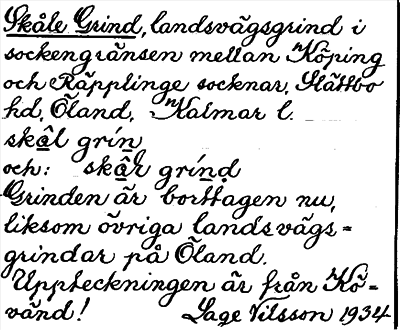 Skåle Grind, landsvägsgrind i
sockengränsen mellan Köping
och Räpplinge socknar, Slättbo
hd, Öland, Kalmar l.
skål grin
och: skål grind
Grinden är borttagen nu,
liksom övriga landsvägs=
grindar på Öland.
Uppteckningen är från Kö=
vänd!   Lage Nilsson 1934